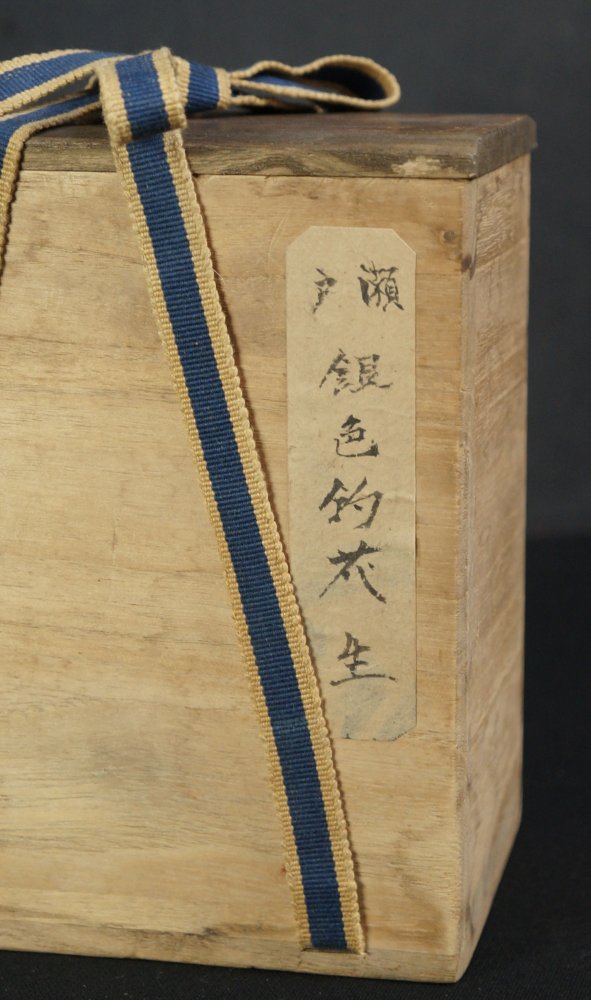 瀬戸
銀色釣花生